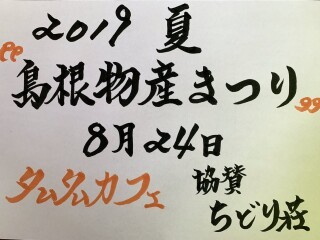 2019 夏
"島根物産まつり"
8月24日
タムタムカフェ 協賛
ちどり荘